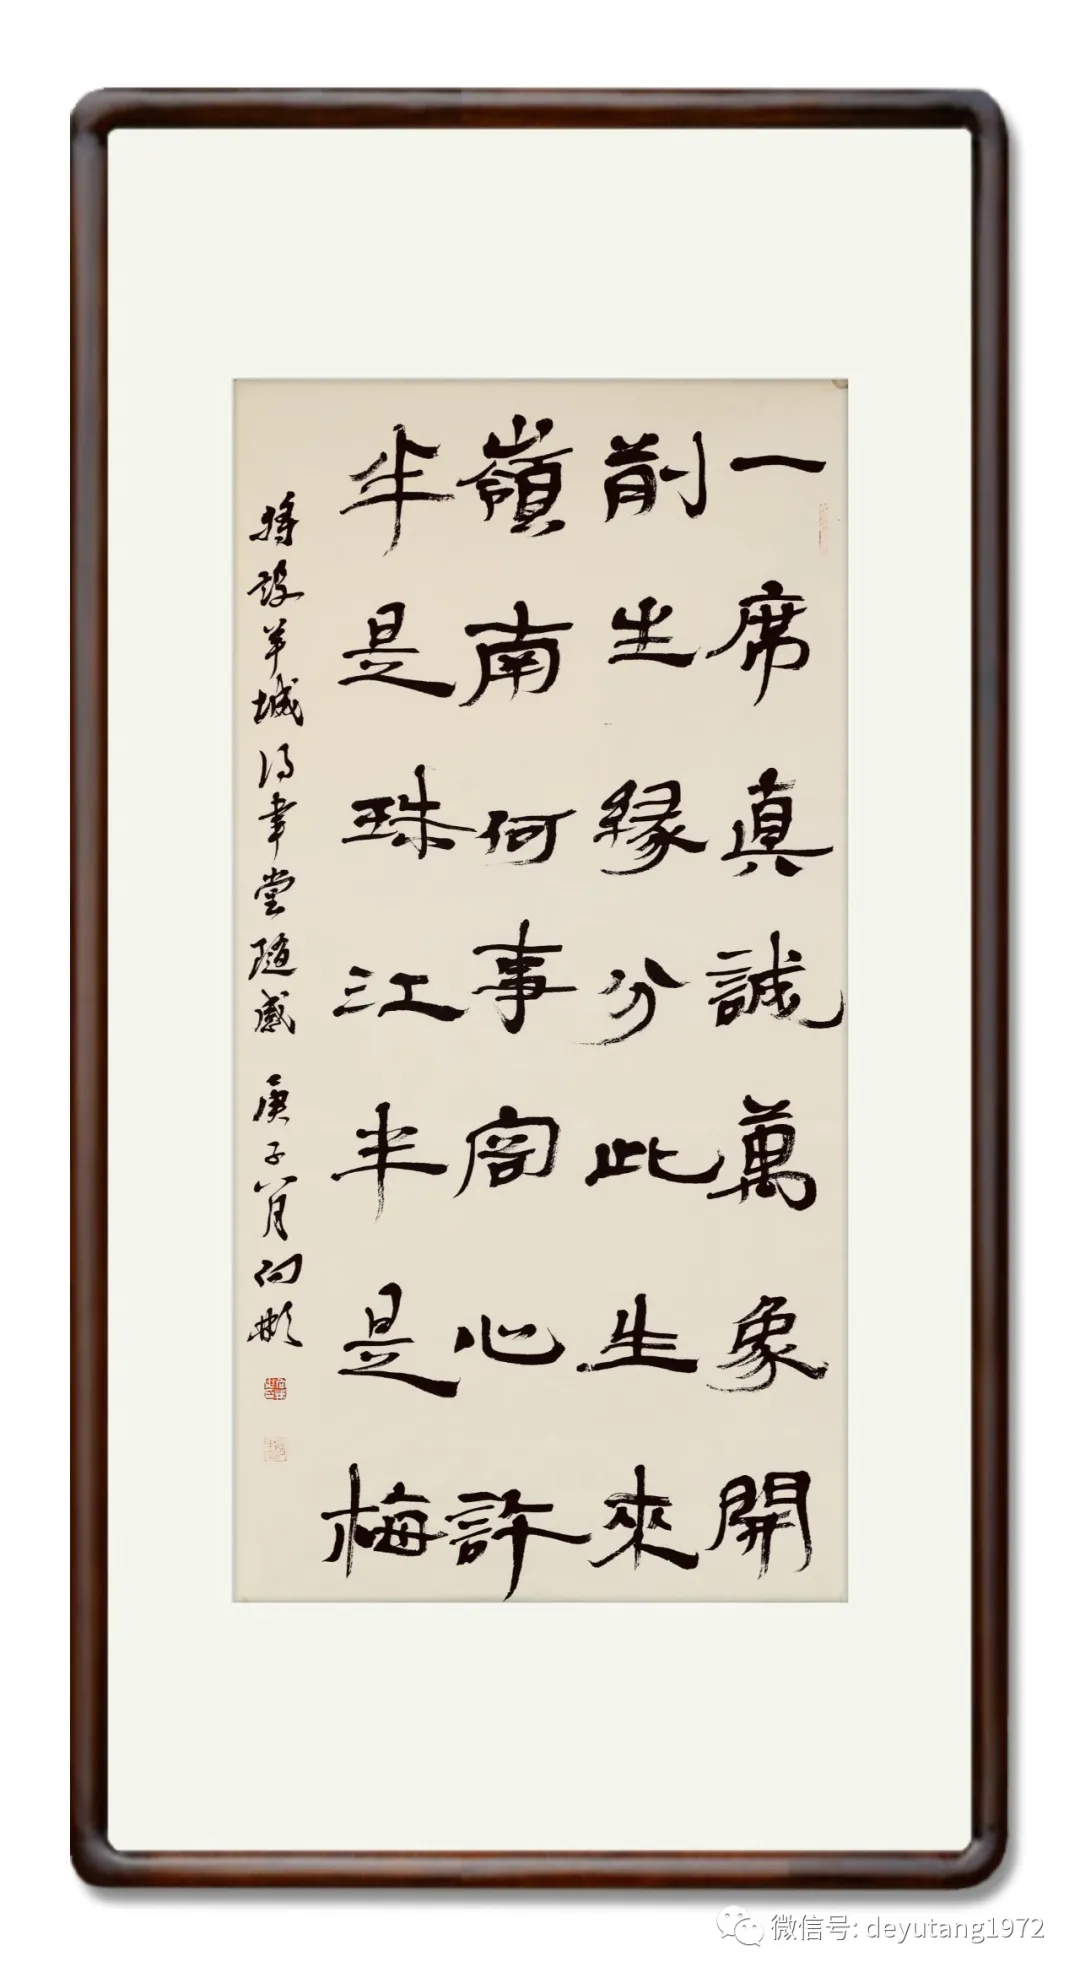 一席真誠萬象開
前生緣分此生來
嶺南何事心許
半是珠江半是梅
將設羊城得聿堂隨感 庚子八月向彬
微信号: deyutang1972